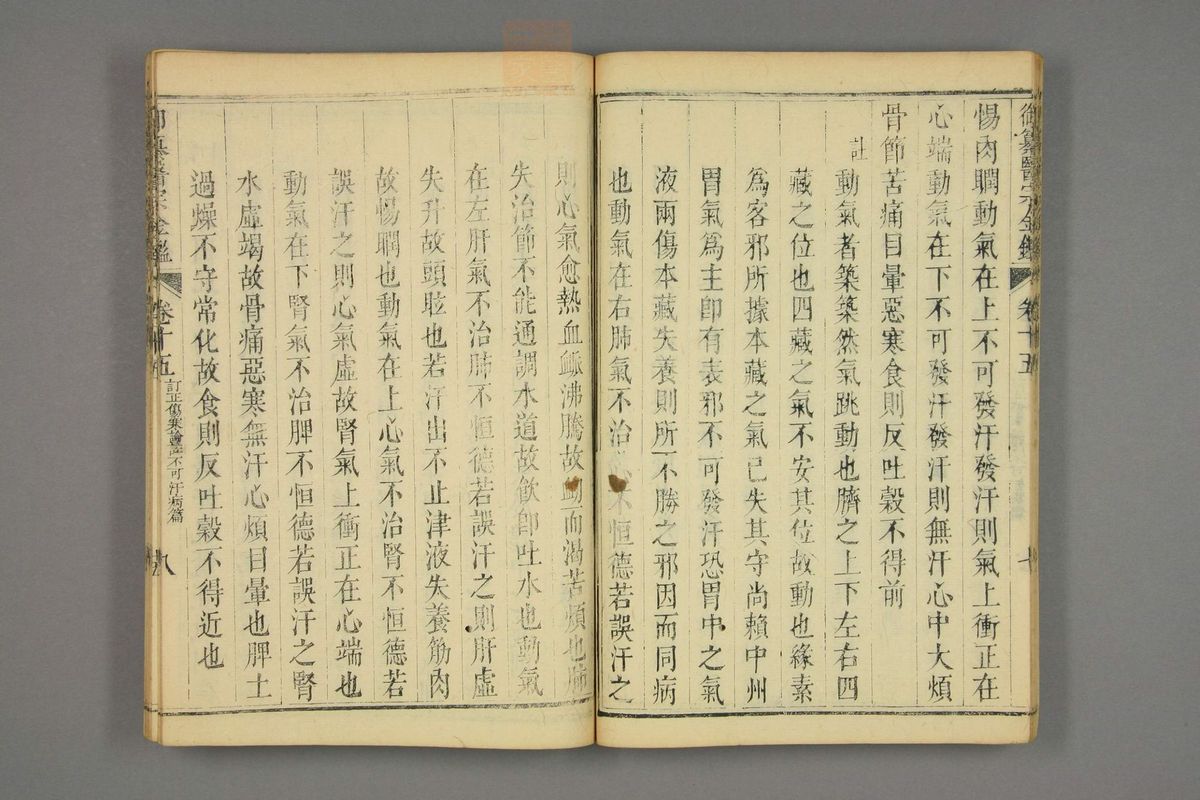 御纂醫宗金鑑
卷十五
七
惕肉瞤動氣在上不可發汗發汗則氣上衝正在
心端動氣在下不可發汗發汗則無汗心中大煩
骨節苦痛目暈惡寒食則反吐穀不得前
註
動氣者築築然氣跳動也臍之上下左右四
藏之位也四藏之氣不安其位故動也緣素
為客邪所據本藏之氣已失其守尚賴中州
胃氣為主卽有表邪不可發汗恐胃中之氣
液兩傷本藏失養則所不勝之邪因而同病
也動氣在右肺氣不治心不恒德若誤汗之
則心氣愈熱血衇沸騰故衄而渴苦煩也肺
失治節不能通調水道故飲卽吐水也動氣
在左肝氣不治肺不恒德若誤汗之則肝虛
失升故頭眩也若汗出不止津液失養筋肉
故惕瞤也動氣在上心氣不治腎不恒德若
誤汗之則心氣虛故腎氣上衝正在心端也
動氣在下腎氣不治脾不恒德若誤汗之腎
水虛竭故骨痛惡寒無汗心煩目暈也脾土
過燥不守常化故食則反吐穀不得近也
御纂醫宗金鑑
卷十五
訂正傷寒論註不可汗病篇
八